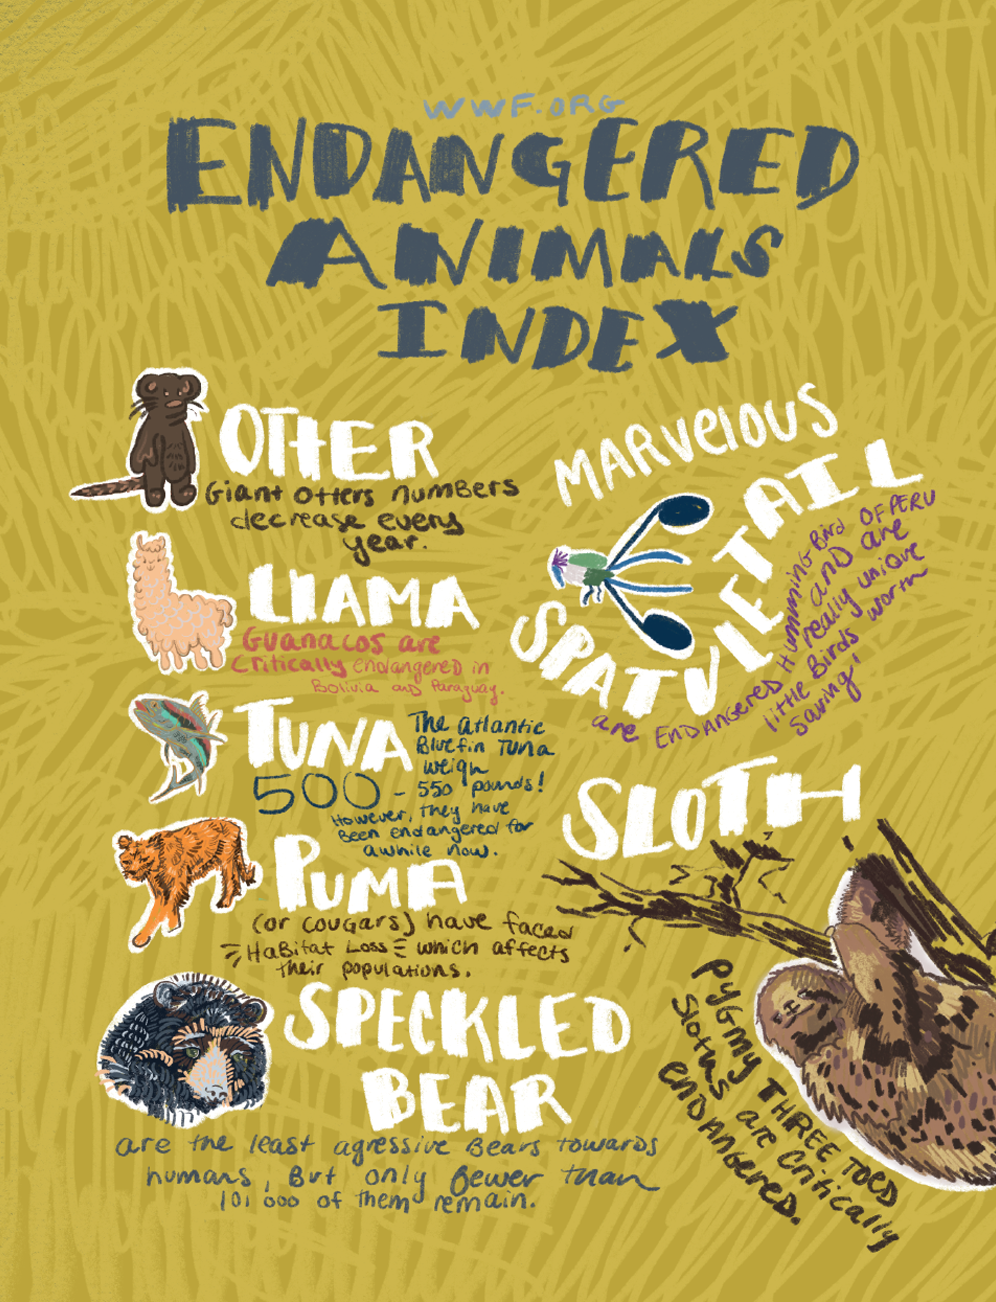 WWF.ORG
ENDANGERED
ANIMALS
INDEX
OTTER
Giant otters numbers
decrease every
year.
LLAMA
Guanacos are
critically endangered in
Bolivia and Paraguay.
TUNA
The atlantic
Bluefin Tuna
weigh
500 - 550 pounds!
However, they have
Been endangered for
awhile now.
PUMA
(or cougars) have faced
Habitat Loss which affects
their populations.
SPECKLED
BEAR
are the least agressive Bears towards
humans, But only fewer than
101000 of them remain.
MARVELOUS
SPATULETAIL
are ENDANGERED Humming Bird OF PERU
and are
really unique
little Birds worth
saving!
SLOTH
PYGMY THREE TOED
Sloths are critically
ENDANGERED.